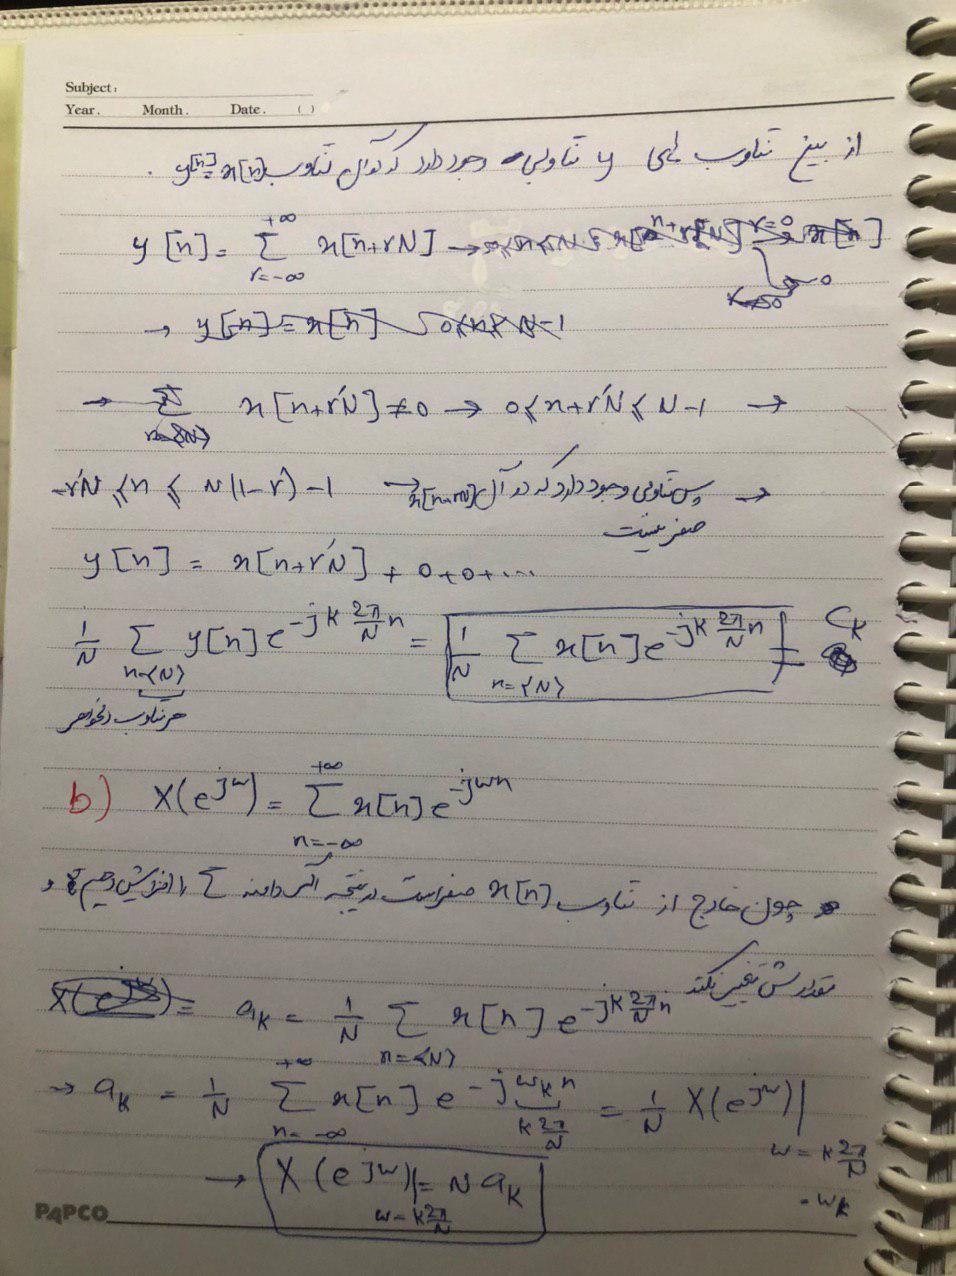 Subject:
Year. Month. Date. ( )
از بین تناوب های y تناوبی وجود دارد که در آن تناوب y[n]=x[n].
y[n] = Σ_{r=-∞}^{+∞} x[n+rN] →
→ y[n] = x[n] 0≤n≤N-1
→ x[n+r'N] ≠ 0 → 0≤n+r'N≤N-1 →
-r'N ≤ n ≤ N(1-r')-1 → پس تناوبی وجود دارد که در آن x[n+rN] →
صفر نیست
y[n] = x[n+r'N] + 0+0+...
1/N Σ_{n=<N>} y[n] e^{-jk 2π/N n} = 1/N Σ_{n=<N>} x[n] e^{-jk 2π/N n} = C_k
هر تناوب دلخواه
b) X(e^{jω}) = Σ_{n=-∞}^{+∞} x[n] e^{-jωn}
چون خارج از تناوب x[n] صفر است در نتیجه اگر دامنه Σ را افزایش دهیم
مقدارش تغییر نکند
a_k = 1/N Σ_{n=<N>} x[n] e^{-jk 2π/N n}
→ a_k = 1/N Σ_{n=-∞}^{+∞} x[n] e^{-jω_k n} = 1/N X(e^{jω})|
k 2π/N
ω = k 2π/N
= ω_k
→ X(e^{jω})| = N a_k
ω = k 2π/N
PAPCO